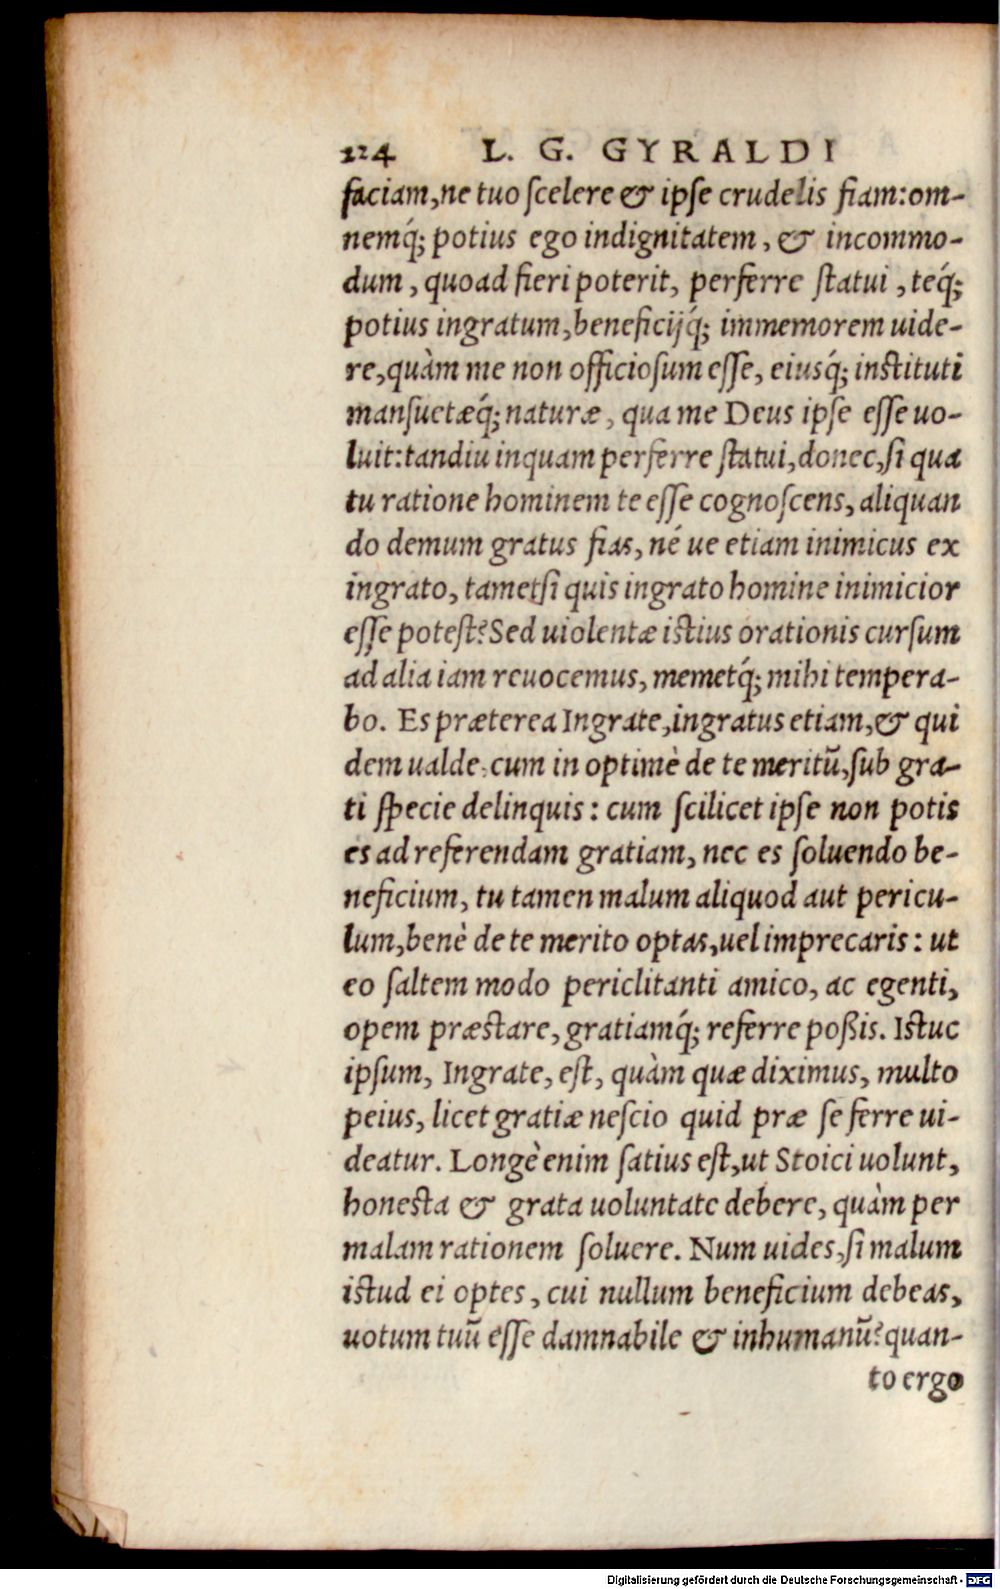 224 L. G. GYRALDI
faciam, ne tuo scelere & ipse crudelis fiam: om-
nemq́; potius ego indignitatem, & incommo-
dum, quoad fieri poterit, perferre statui, teq́;
potius ingratum, beneficijq́; immemorem uide-
re, quàm me non officiosum esse, eiusq́; instituti
mansuetæq́; naturæ, qua me Deus ipse esse uo-
luit: tandiu inquam perferre statui, donec, si qua
tu ratione hominem te esse cognoscens, aliquan
do demum gratus fias, né ue etiam inimicus ex
ingrato, tametsi quis ingrato homine inimicior
esse potest? Sed uiolentæ istius orationis cursum
ad alia iam reuocemus, memetq́; mihi tempera-
bo. Es præterea Ingrate, ingratus etiam, & qui
dem ualde, cum in optimè de te meritũ, sub gra-
ti specie delinquis: cum scilicet ipse non potis
es ad referendam gratiam, nec es soluendo be-
neficium, tu tamen malum aliquod aut pericu-
lum, benè de te merito optas, uel imprecaris: ut
eo saltem modo periclitanti amico, ac egenti,
opem præstare, gratiamq́; referre poßis. Istuc
ipsum, Ingrate, est, quàm quæ diximus, multo
peius, licet gratiæ nescio quid præ se ferre ui-
deatur. Longè enim satius est, ut Stoici uolunt,
honesta & grata uoluntate debere, quàm per
malam rationem soluere. Num uides, si malum
istud ei optes, cui nullum beneficium debeas,
uotum tuũ esse damnabile & inhumanũ? quan-
to ergo
Digitalisierung gefördert durch die Deutsche Forschungsgemeinschaft - DFG